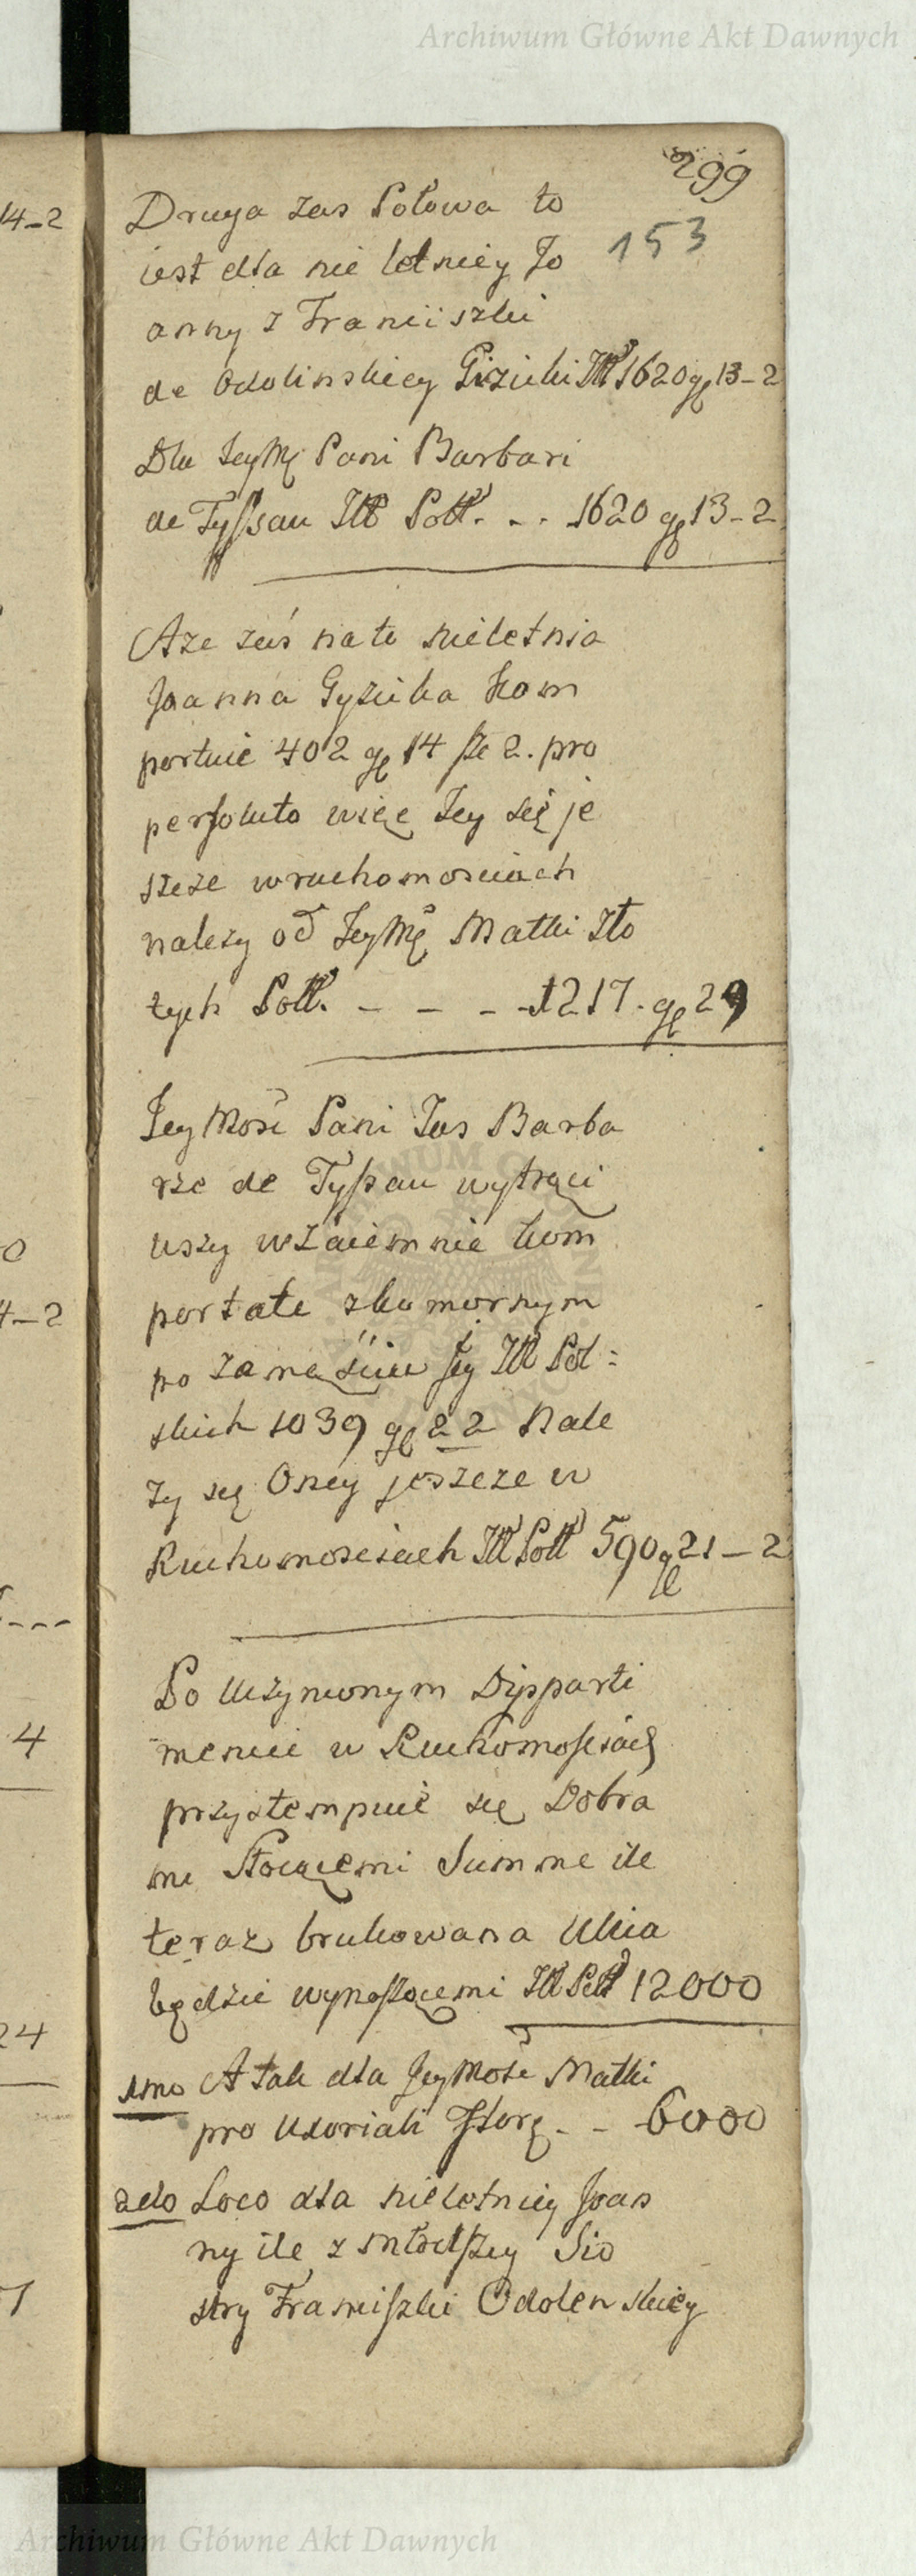 Archiwum Główne Akt Dawnych
299
153
14-2
Druga zas Połowa to
iest dla nie letniey Jo
anny z Franciszki
de Odolinskiey Gizicki Złł 1620 gl 13-2
Dla JeyMę Pani Barbari
de Tyssau Złł Poll. - - 1620 gl 13-2
Aże zaś na to nieletnia
Joanna Gyzicka kom
portuie 402 gl 14 sze 2. pro
persoluto więc Jey się je
szcze w ruchomosciach
nalezy od JeyMę Matki Zło
tych Poll. - - - 1217. gl 29
Jey Mość Pani Zas Barba
rze de Tyssau wytrąci
wszy wzaiemnie kom
portate z komornym
po zamęściu Jey Złł Pol:
skich 1039 gl 22 Nale
zy się Oney jeszcze w
Ruchomosciach Złł Poll 590 gl 21-2
Po Uczynionym Dyparti
mencie w Ruchomosciach
przystempuie się Dobra
mi Stoiącemi Summe ile
teraz brukowana Ulica
będzie wynoszącemi Złł Poll 12000
1mo A tak dla Jey Mość Matki
pro Uxoriali Fforę. - - 6000
2do Loco dla nieletniey Joan
ny ile z młodszey Sio
stry Franciszki Odolenskiey
0
4-2
4
24
Archiwum Główne Akt Dawnych